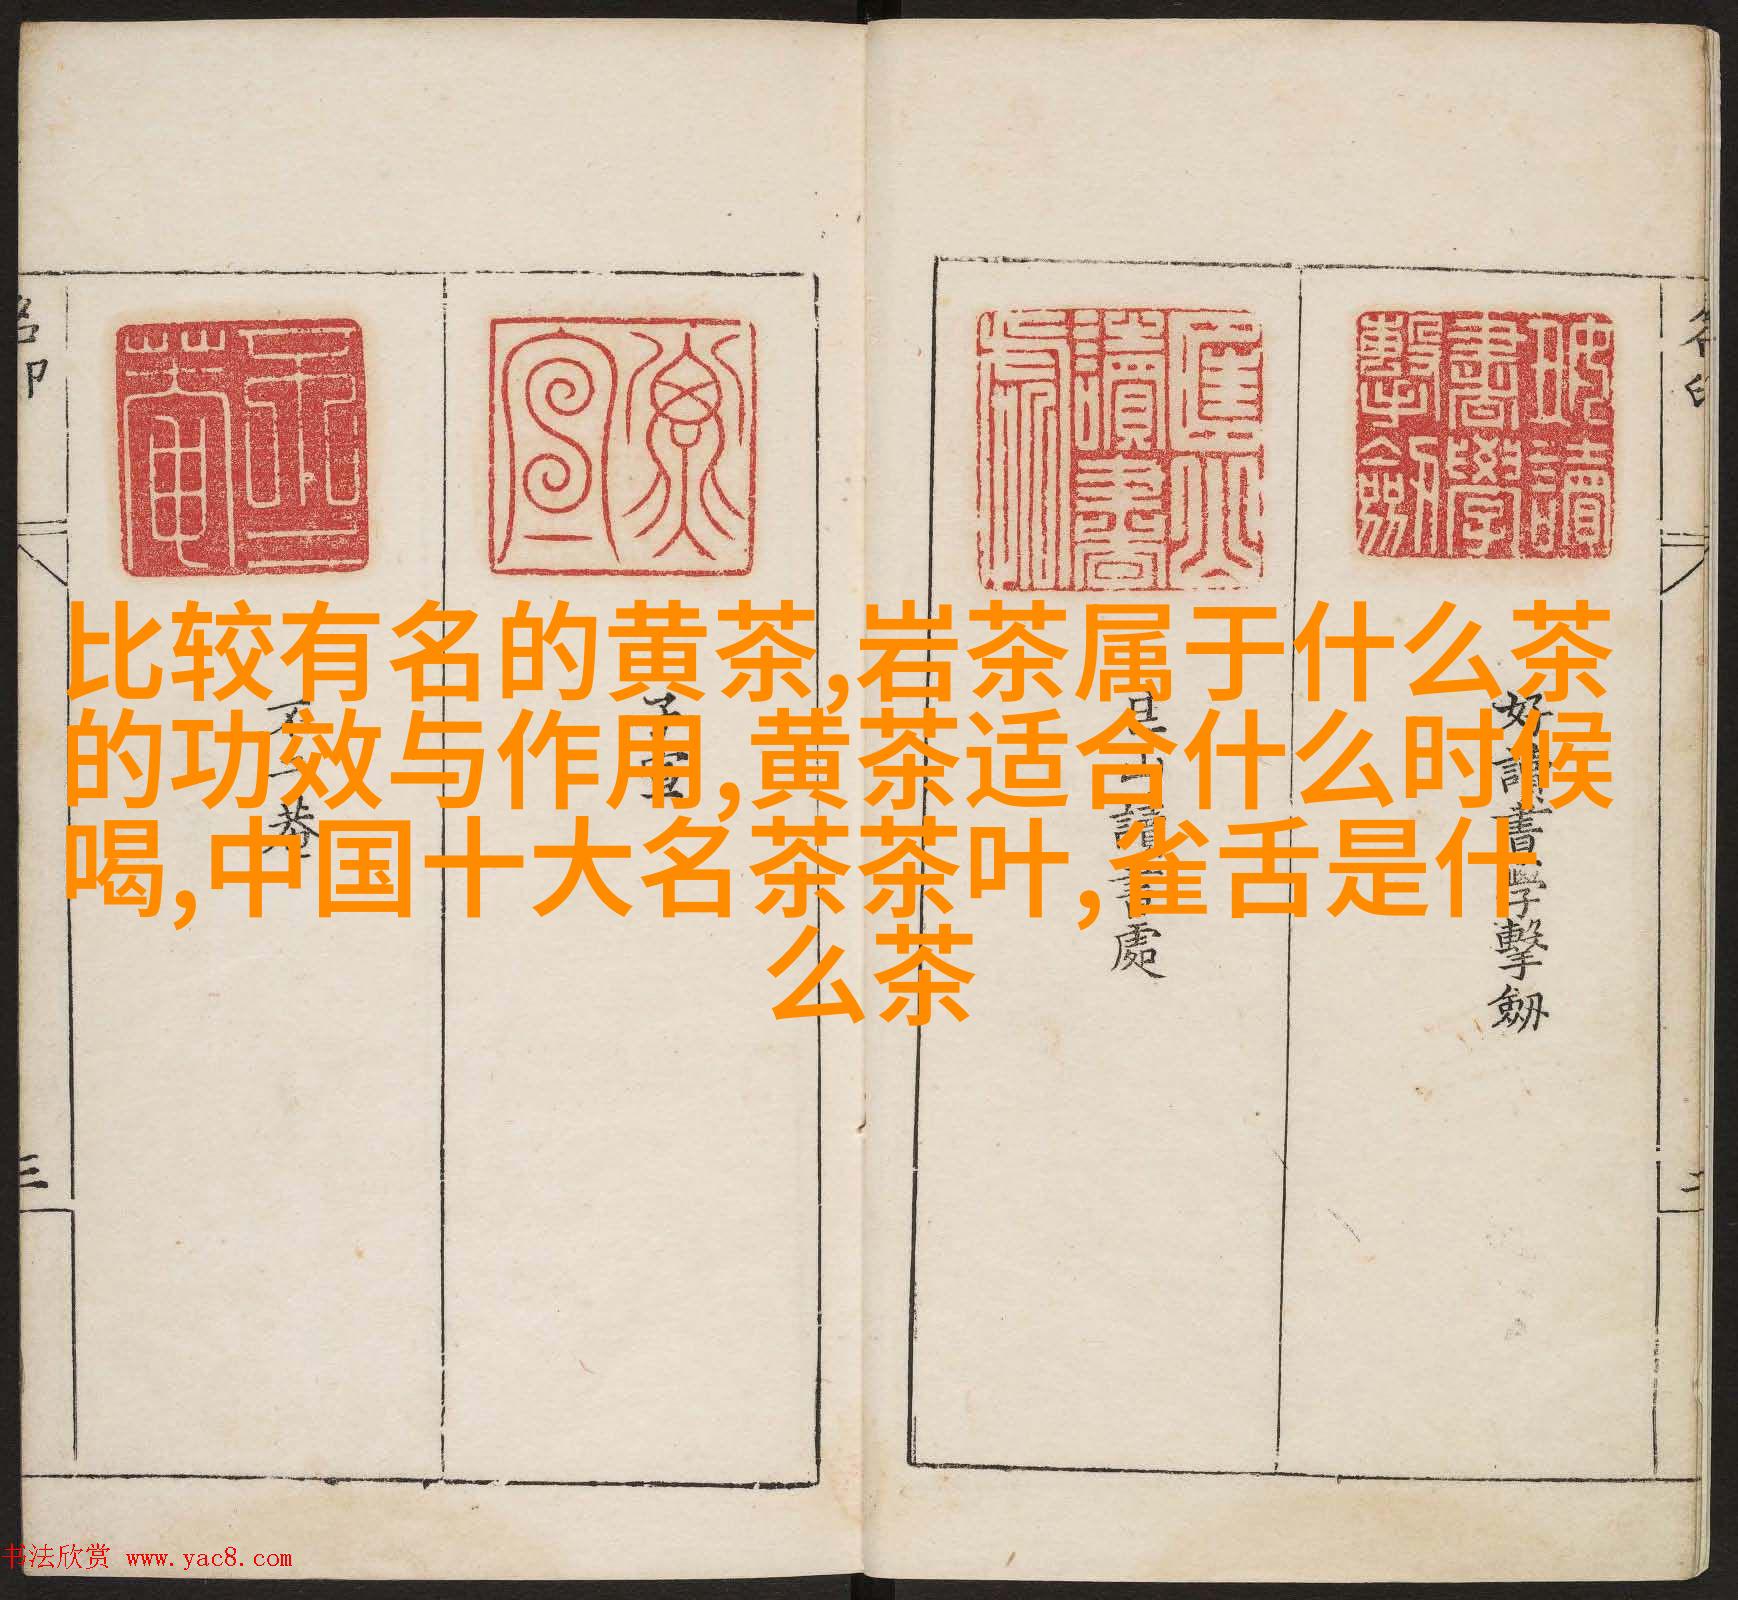 比较有名的黄茶,岩茶属于什么茶
的功效与作用,黄茶适合什么时候
喝,中国十大名茶茶叶,雀舌是什
么茶
好讀書學擊劒
匡山讀書處
三
书法欣赏 www.yac8.com